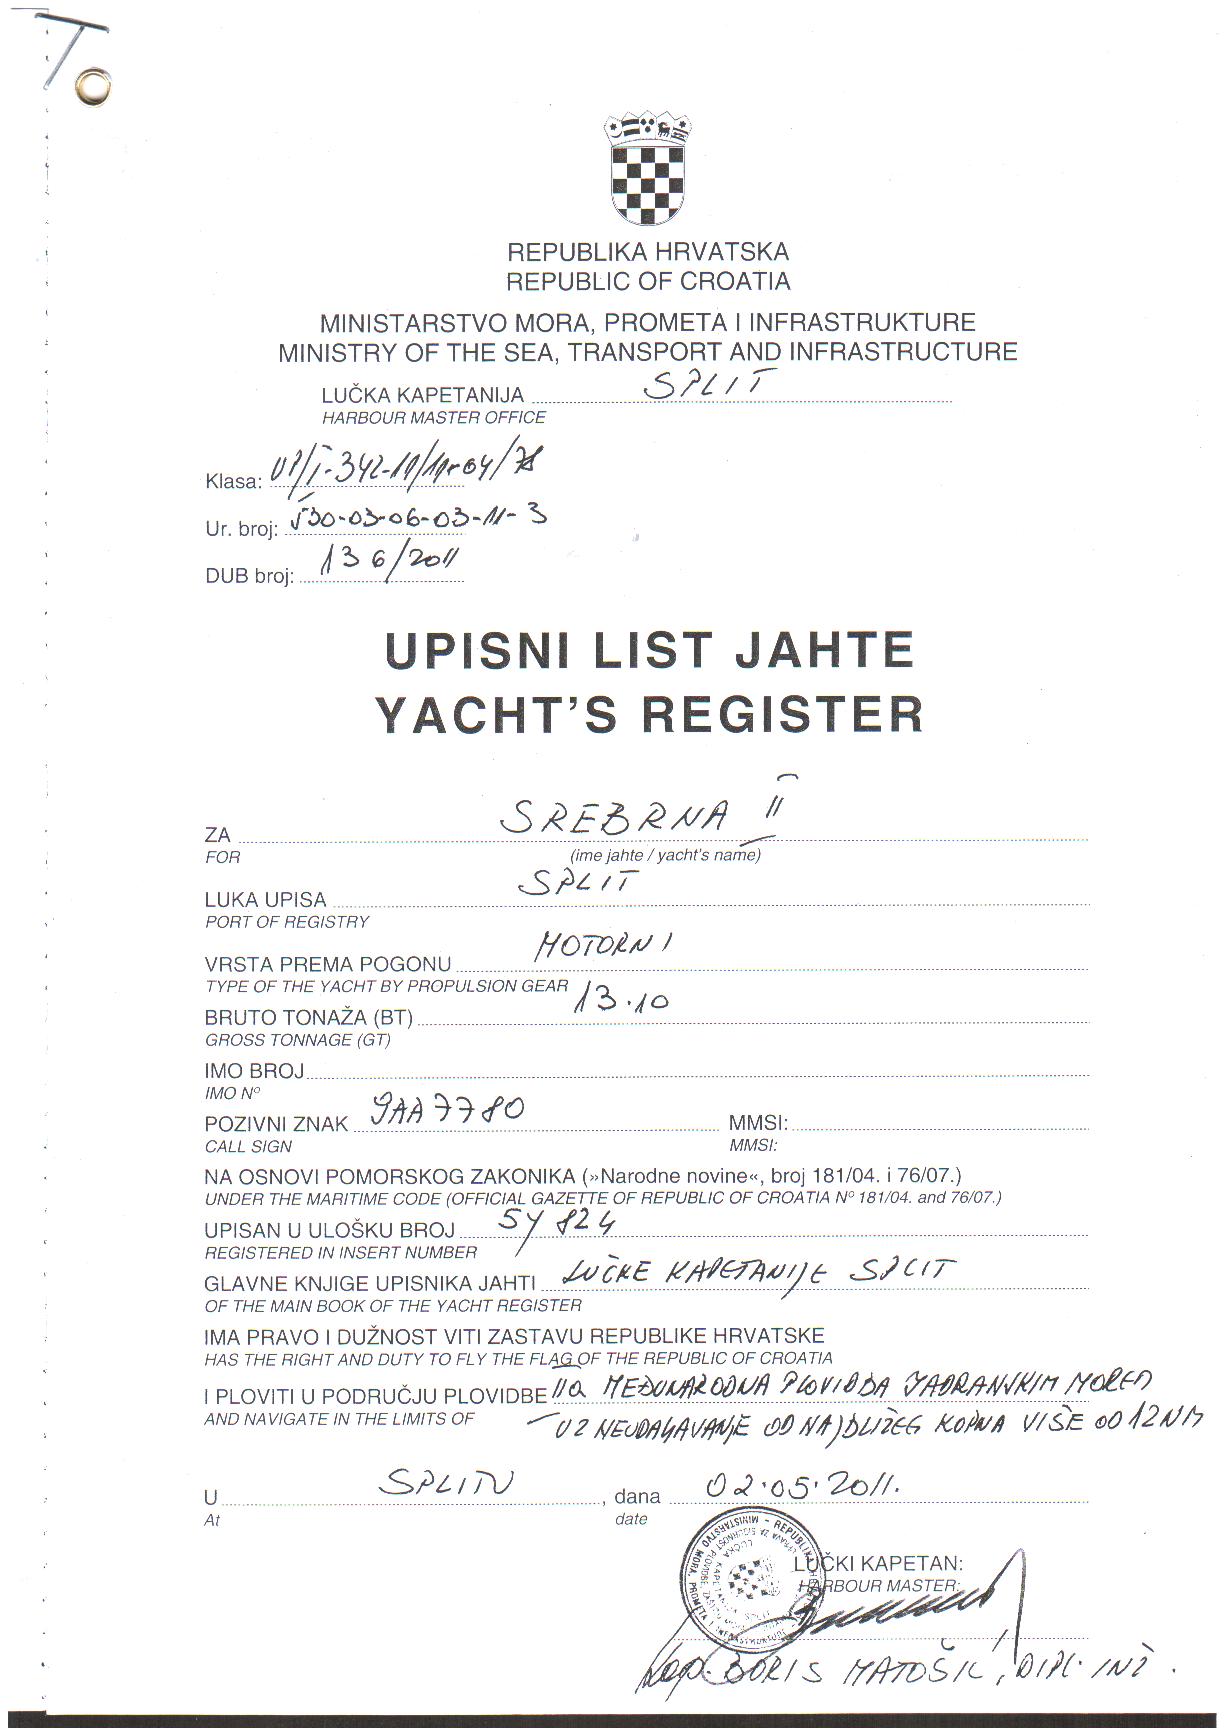 REPUBLIKA HRVATSKA
REPUBLIC OF CROATIA
MINISTARSTVO MORA, PROMETA I INFRASTRUKTURE
MINISTRY OF THE SEA, TRANSPORT AND INFRASTRUCTURE
LUČKA KAPETANIJA SPLIT
HARBOUR MASTER OFFICE
Klasa: UP/I-342-19/11-04/78
Ur. broj: 530-03-06-03-11-3
DUB broj: 136/2011
UPISNI LIST JAHTE
YACHT'S REGISTER
ZA SREBRNA II
FOR (ime jahte / yacht's name)
LUKA UPISA SPLIT
PORT OF REGISTRY
VRSTA PREMA POGONU MOTORNI
TYPE OF THE YACHT BY PROPULSION GEAR
BRUTO TONAŽA (BT) 13.10
GROSS TONNAGE (GT)
IMO BROJ
IMO Nº
POZIVNI ZNAK 9AA7780 MMSI:
CALL SIGN MMSI:
NA OSNOVI POMORSKOG ZAKONIKA (»Narodne novine«, broj 181/04. i 76/07.)
UNDER THE MARITIME CODE (OFFICIAL GAZETTE OF REPUBLIC OF CROATIA Nº 181/04. and 76/07.)
UPISAN U ULOŠKU BROJ 824
REGISTERED IN INSERT NUMBER
GLAVNE KNJIGE UPISNIKA JAHTI LUČKE KAPETANIJE SPLIT
OF THE MAIN BOOK OF THE YACHT REGISTER
IMA PRAVO I DUŽNOST VITI ZASTAVU REPUBLIKE HRVATSKE
HAS THE RIGHT AND DUTY TO FLY THE FLAG OF THE REPUBLIC OF CROATIA
I PLOVITI U PODRUČJU PLOVIDBE MEĐUNARODNA PLOVIDBA JADRANSKIM MOREM
AND NAVIGATE IN THE LIMITS OF UZ NEUDALJAVANJE OD NAJBLIŽEG KOPNA VIŠE OD 12 NM
U SPLITU, dana 02.05.2011.
At date
LUČKI KAPETAN:
HARBOUR MASTER:
kap. BORIS MATOŠIĆ, DIPL. INŽ.